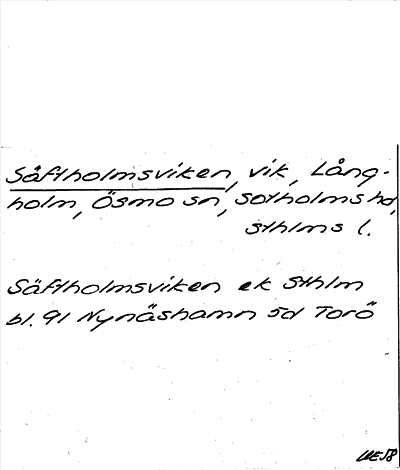 Säftholmsviken, vik, Lång-
holm, Ösmo sn, Sotholms hd,
Sthlms l.
Säftholmsviken ek Sthlm
bl. 91 Nynäshamn 5d Torö